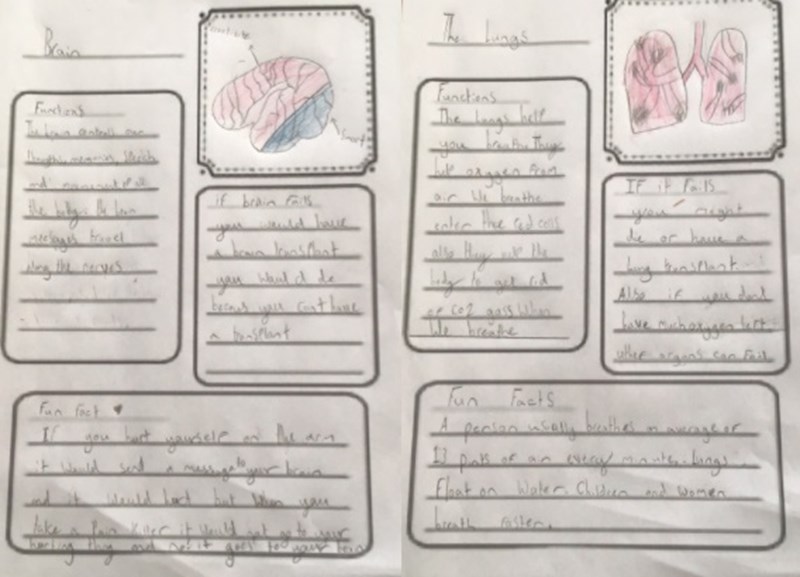 Brain
Functions
The brain controls our
thoughts, memories, speech
and movement of all
the body. The brain
messages travel
along the nerves
Smart
if brain Fails
you would have
a brain transplant
you would die
becaus you cant have
a transplant
Fun Fact ♥
If you hurt yourself on the arm
it would send a message to your brain
and it would hurt but when you
take a Pain killer it would not go to your
hurting thing and not it goes to your brain
The Lungs
Functions
The Lungs help
you breathe They
help oxygen From
air We breathe
enter the red cells
also they help the
body to get rid
of CO2 gass When
We breathe
IF it Fails
you might
die or have a
lung transplant.
Also if you dont
have much oxygen left
other organs can Fail
Fun Facts
A person usually breathes an average of
13 pints of air every minute. Lungs
Float on Water. Children and Women
breath Faster.